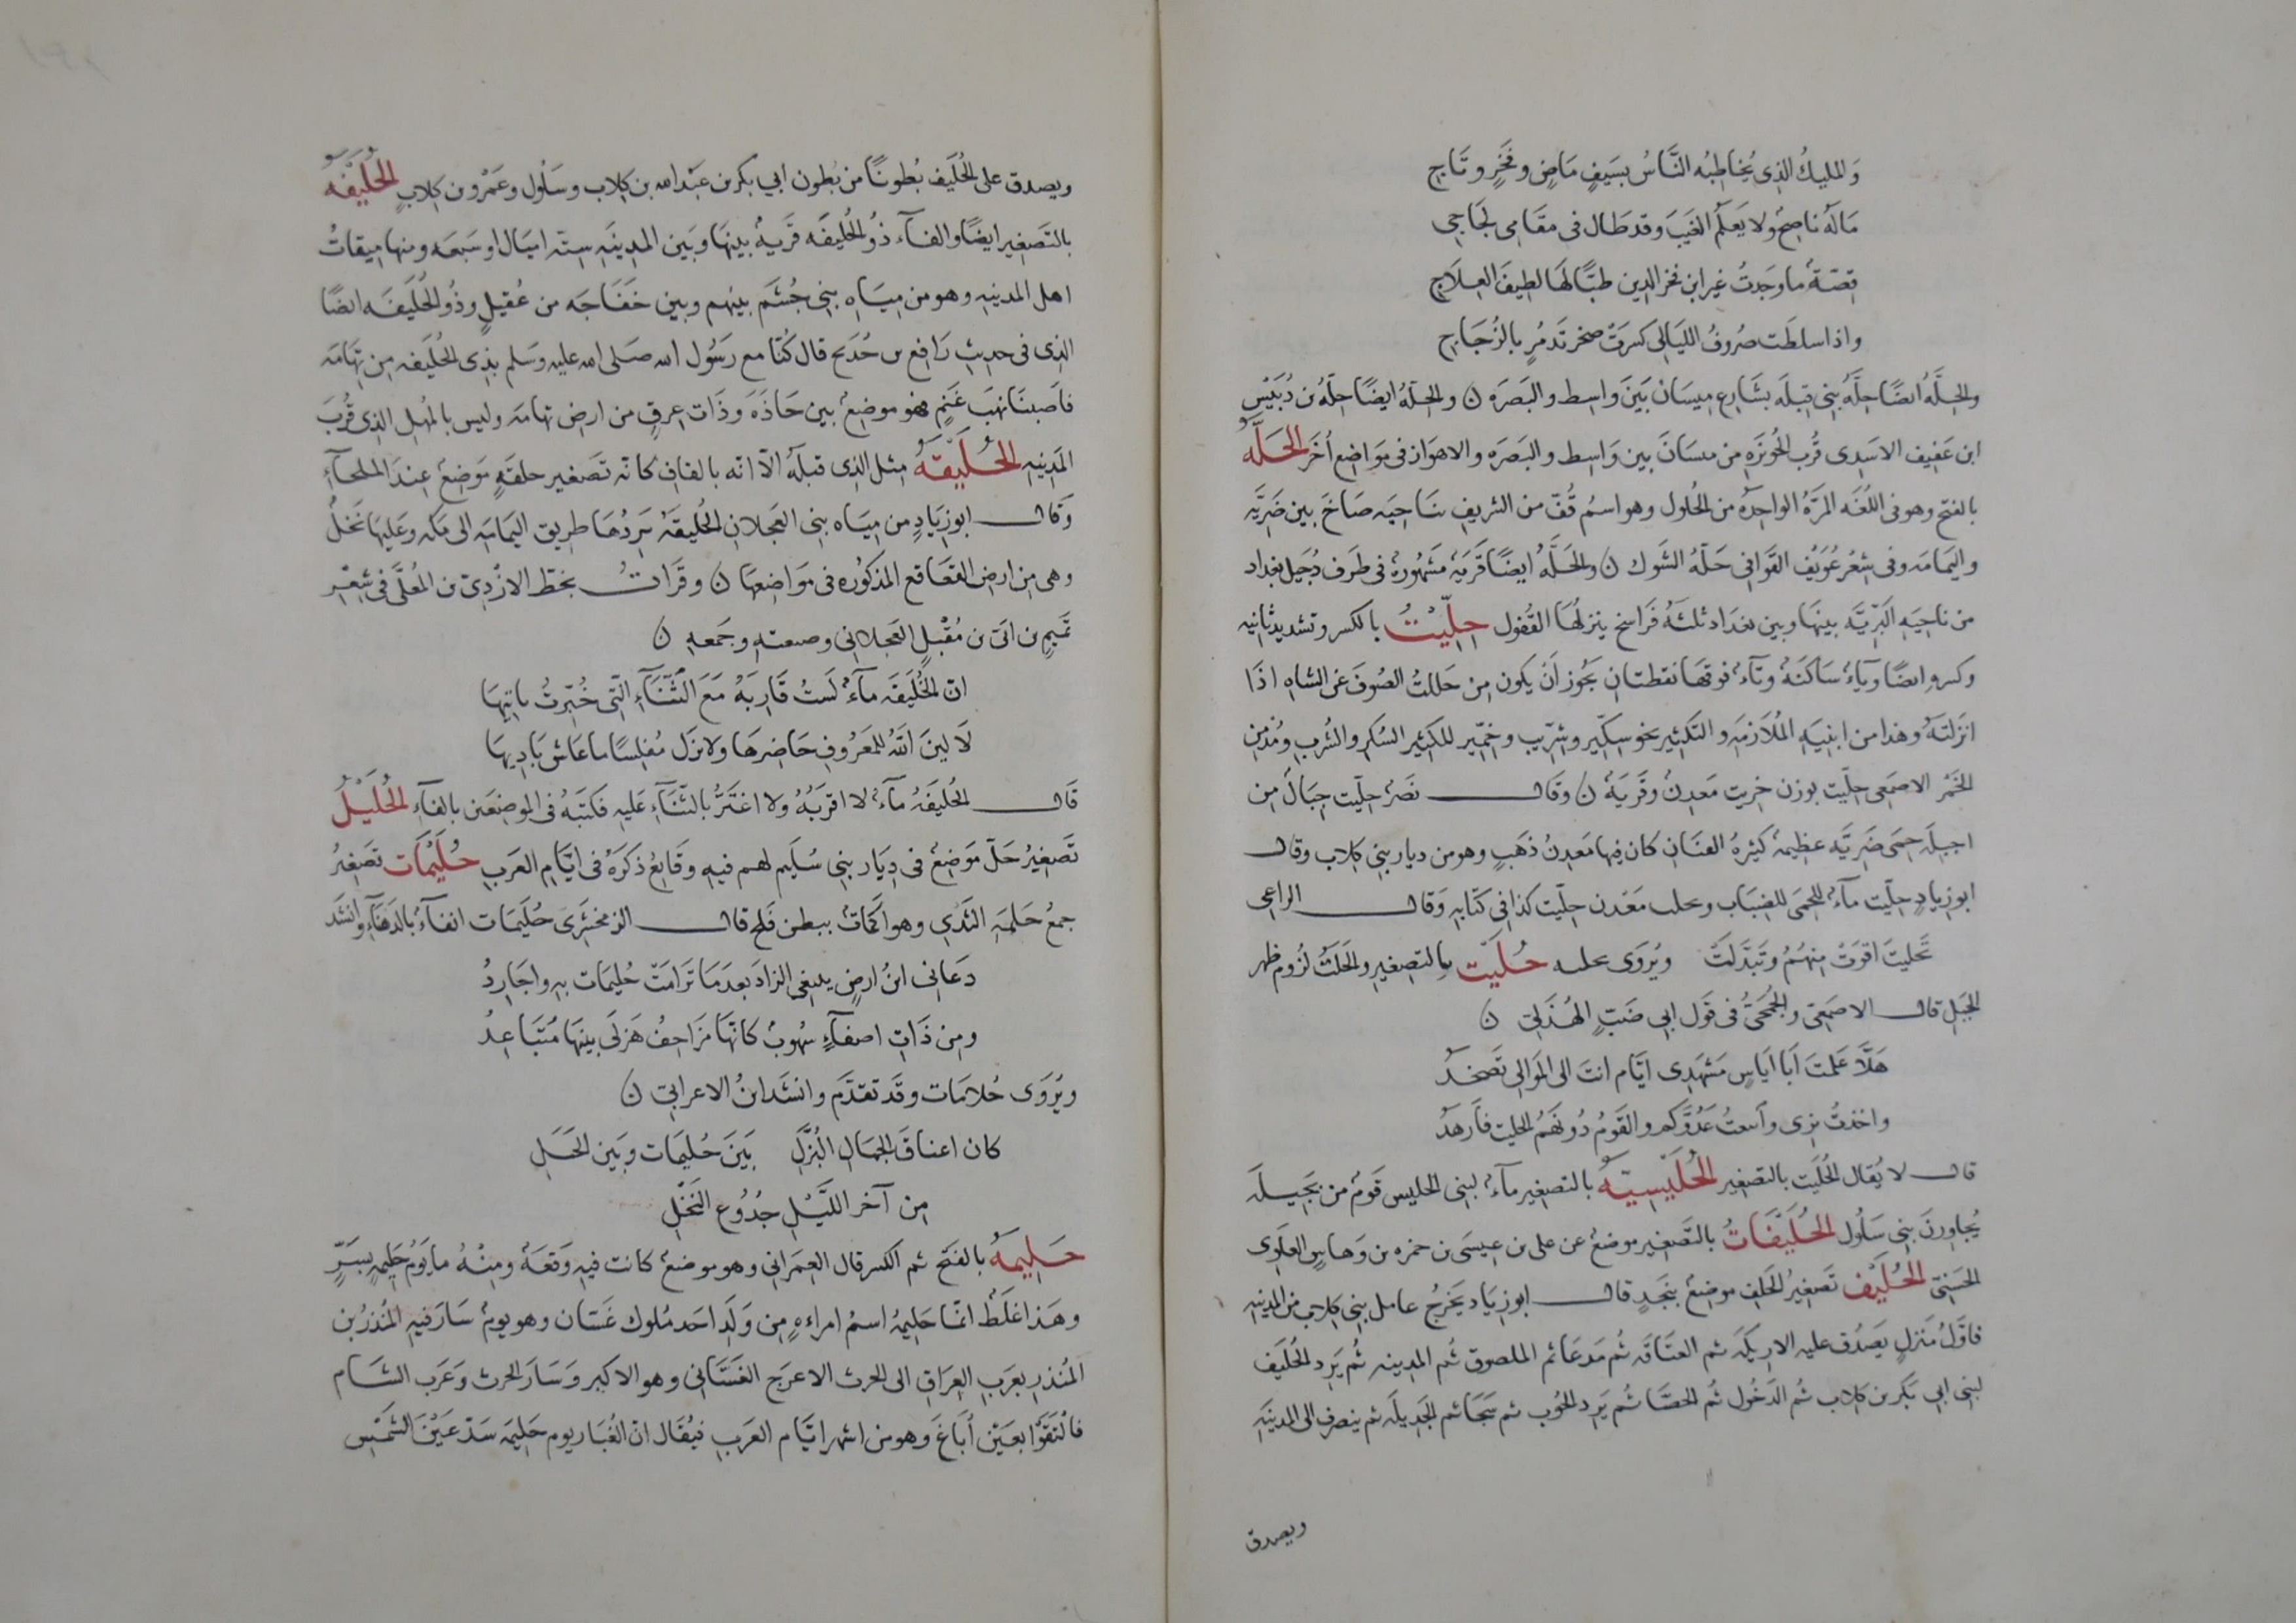 وَالمليكُ الذى يُخاطِبُه النَّاسُ بسَيفٍ مَاضٍ وفَخرٍ وتَاجِ
مَالَهُ ناصِحٌ ولا يَعلَم الغَيبَ وقد طَال فى مقَامى لجَاجى
قصّة ما وجَدتُ غير ابن فخر الدين طبّا لهَا لطيفَ العِلَاجِ
واذا سلطَت صُروفُ الليَالِى كسرَتْ صخر تَدمُرٍ بالزُجَاجِ
والحِلَّهُ ايضًا حِلَّهُ بنى قيلَه بشَارع ميسَان بَينَ وَاسِط والبَصَره ن والحِلّهُ ايضًا حِلّهُ بن دُبَيْس
ابن عَفيف الاسَدى قُربَ الحُوَيزَهِ من ميسَانَ بين وَاسِط والبَصَره والاهوَاز فى مَوَاضِع أُخَر الحَلَّهُ
بالفتح وهو فى اللغَه المَرَّهُ الواحِدهُ من الحُلول وهو اسمُ قُفّ من الشريفِ بنَاحِيَه ضَاخَ بين ضَرِيَّه
واليَمامَه وفى شِعْر عُوَيْف القَوافى حَلّهُ الشَوك ن والحَلّهُ ايضًا قَريَهٌ مَشهُورهٌ فى طَرَف دُجَيل بغداد
من ناحِيَهِ البَرّيَّه بينهَا وبين بغدَاد ثلثهُ فَراسِخ ينزلُهَا القُفول حِلِّيْتُ بالكسر وتشديد ثانيه
وكسره ايضًا ويَاءٌ سَاكنَهٌ وتَآءٌ فوقهَا نقطتان يَجُوز أن يكون مِن حَللتُ الصُوفَ عَن الشاه اذَا
انزلتَهُ وهذا من ابنيَهِ المُلَازمَه والتَكثير نحو سِكّير وشِرّيب وخِمّير للكثير السُكر والشُرب ومُدْمن
الخَمْر الاصمَعى حِلّيت بوزن خريت مَعدِنٌ وقَريَهٌ ن وقَال نصَرٌ حِلّيت جِبَالٌ مِن
اجبلَه حِمَى ضَرِيَّه عظيمَهٌ كثيرهُ القنَان كان فيها مَعدِنُ ذَهَبٍ وهو من ديار بنى كلاب وقال
ابو زيادٍ حِلّيت مآءٌ بالحِمَى للضِبَاب وبحلب مَعْدن حِلّيت كذا فى كتابِه وَقَال الراعى
بَحلّيتَ اقوَتْ مِنهُمُ وتَبَدَّلَتْ ويُروَى بحليه حُلَيْتَ بالتصغير والحَلتُ لزُوم ظهر
الجَبل قال الاصمَعىّ والجُمَحىُّ فى قول ابى ضَبٍّ الهُذَلىّ ن
هَلَّا عَلمتَ أبَا ايَاسٍ مَشهَدى ايّام انتَ الى المَوالى تَصخَدُ
واخذتُ بزى واتّبعتُ عَدُوَّكم والقَومُ دُونَهُمُ الحليت فأرهَدُ
قال لا يُقال الحُلَيت بالتصغير الحُلَيْسيّهُ بالتصغير مآءٌ لبنى الحليس قَومٌ من بَجيلَه
يُجاورنَ بنى سَلُول الحُلَيْفَاتُ بالتَصغير موضعٌ عن على بن عيسَى بن حمزه بن وَهاسٍ العَلَوى
الحَسَنىّ الحُلَيْفُ تصغيرُ الحَلف موضعٌ بنَجَدٍ قال ابو زيَاد يَخرُجُ عامل بنى كلاب من المدينه
فاوَّلُ مَنزلٍ يصَدّق عليه الاريكَه ثم العنَاقَه ثُم مَدعَا ثم المصلوق ثُم المدينه ثُم يَرِد الحُلَيفَ
لبنى ابى بَكر بن كلاب ثُم الدَخُول ثُم الحصَّا ثُم يَرِد الحَوب ثم سَجَا ثم الجَديلَه ثم ينصرف الى المدينَهِ
ويصدق
ويصدق على الحُلَيف بُطونًا من بُطون ابى بكر بن عَبْد الله بن كِلاب وسَلُول وعَمْرو بن كِلابٍ الحُلَيْفَهُ
بالتَصغير ايضًا والفآء ذُو الحُليفَه قَريهٌ بينهَا وبَين المدينَهِ ستّه اميَال او سَبعَه ومنها ميقاتُ
اهل المدينه وهو من مِيَاهِ بنى جُشَم بينهم وبين خَفَاجَه من عُقيلٍ وذُو الحُلَيفَه ايضًا
الذى فى حديثِ رَافِع بن خُدَيج قال كُنّا مع رَسُول الله صَلى الله عليه وسَلم بذى الحُلَيفه مِن تِهَامَه
فاصَبنَا نهبَ غَنَمٍ فهو موضِعٌ بين حَاذَهَ وذَات عِرقٍ من ارض تهامَه وليس بالمُهَلِ الذى قُربَ
المَدِينه الحُلَيْقَهُ مِثل الذى قبلَه الّا انّه بالقاف كانّه تَصغير حلقَهٍ مَوضِعٌ عِندَ الملحآء
وقال ابو زيادٍ من ميَاه بنى العَجلان الحُليقَهُ يَرِدُهَا طريق اليَمامَه الى مَكه وعَلَيهَا نَخلٌ
وهى مِن ارضِ القعَاقع المذكوره فى مَوَاضِعها ن وقَرَاتُ بخطّ الازْدىّ بن المُعلَّى فى شِعْرِ
تَميمِ بن ابَىّ بن مُقْبلٍ العَجلانى وصنعتِه وجمعِه ن
انّ الحُلَيقَه مآءٌ لَستُ قَاربَهُ مَعَ الثَّنآءِ الَّتى خُبّرتُ ياتيهَا
لَا ليّنَ اللهُ للمَعرُوفِ حَاضِرهَا ولا يزل مُفلِسًا ما عَاش بَاديهَا
قَال الحُليفَهُ مآءٌ لا اقربُهُ ولا اغتَرُّ بالثّنَآءِ عَليه فكتبَهُ فى الموضعَين بالفآءِ الحُلَيْلُ
تَصغيرُ حَلّ مَوضِعٌ فى دِيَار بنى سُلَيم لهم فيه وقَايعُ ذكرَهُ فى ايّام العَربِ حُلَيْمَات تصَغيرُ
جمعُ حلمَهِ الثَدى وهو اكمَاتٌ ببطن فَلج قال الزمخشَرى حُلَيمَات انقآءٌ بالدَهنآءِ وانشَد
دَعَانى ابنُ ارضٍ يبتغى الزادَ بعدَمَا تَرَامَتْ حُليمَات به واجَارِدُ
ومِن ذَاتِ اصفآءٍ سُهوبٌ كانّهَا مزَاحِفُ هَزلَى بينهَا مُتَبَاعِدُ
ويُروَى حُلامَات وقد تقدَّم وانشَد ابنُ الاعرابىّ ن
كان اعناقَ الجِمَال البُزَّلِ بَينَ حُليَمات وبَين الحَبلِ
مِن آخر اللَّيْلِ جُذُوع النَخْلِ
حَليمَهُ بالفَتح ثم الكسر قال العِمرَانى وهو موضعٌ كانت فيه وَقعَهٌ ومِنهُ ما يَوْمُ حَليمهٍ بسِرٍّ
وهَذا غلَطٌ انّما حَليمهُ اسمُ امراهٍ مِن وَلَد احَد مُلوك غَسّان وهو يومٌ سَارَ فيه المُنذرُ بن
المُنذِر بعَربِ العِرَاقِ الى الحرث الاعرَج الغَسّانى وهو الاكبر وَسَارَ الحرث وعَرَب الشَام
فالتَقَوْا بعَيْن أُبَاغَ وهو من اشهر ايّام العَرَب فيُقال انّ الغُبَار يوم حَليمَه سَدّ عَيْنَ الشمْسِ